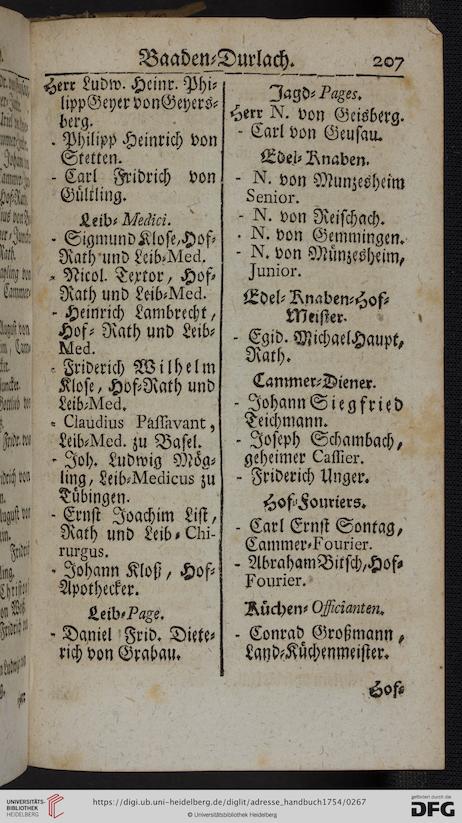 Baaden-Durlach. 207
Herr Ludw. Heinr. Phi-
lipp Geyer von Geyers-
berg.
- Philipp Heinrich von
Stetten.
- Carl Fridrich von
Gültling.
Leib-Medici.
- Sigmund Klose, Hof-
Rath und Leib-Med.
- Nicol. Textor, Hof-
Rath und Leib-Med.
- Heinrich Lambrecht,
Hof-Rath und Leib-
Med.
- Friderich Wilhelm
Klose, Hof-Rath und
Leib-Med.
- Claudius Passavant,
Leib-Med. zu Basel.
- Joh. Ludwig Mög-
ling, Leib-Medicus zu
Tübingen.
- Ernst Joachim List,
Rath und Leib-Chi-
rurgus.
- Johann Kloß, Hof-
Apothecker.
Leib-Page.
- Daniel Frid. Diete-
rich von Grabau.
Jagd-Pages.
Herr N. von Geisberg.
- Carl von Geusau.
Edel-Knaben.
- N. von Munzesheim
Senior.
- N. von Reischach.
- N. von Gemmingen.
- N. von Münzesheim,
Junior.
Edel-Knaben-Hof-
Meister.
- Egid. Michael Haupt,
Rath.
Cammer-Diener.
- Johann Siegfried
Teichmann.
- Joseph Schambach,
geheimer Cassier.
- Friderich Unger.
Hof-Fouriers.
- Carl Ernst Sontag,
Cammer-Fourier.
- Abraham Bitsch, Hof-
Fourier.
Küchen-Officianten.
- Conrad Großmann,
Land-Küchenmeister.
Hof-
UNIVERSITÄTS-
BIBLIOTHEK
HEIDELBERG
https://digi.ub.uni-heidelberg.de/diglit/adresse_handbuch1754/0267
© Universitätsbibliothek Heidelberg
gefördert durch die
DFG